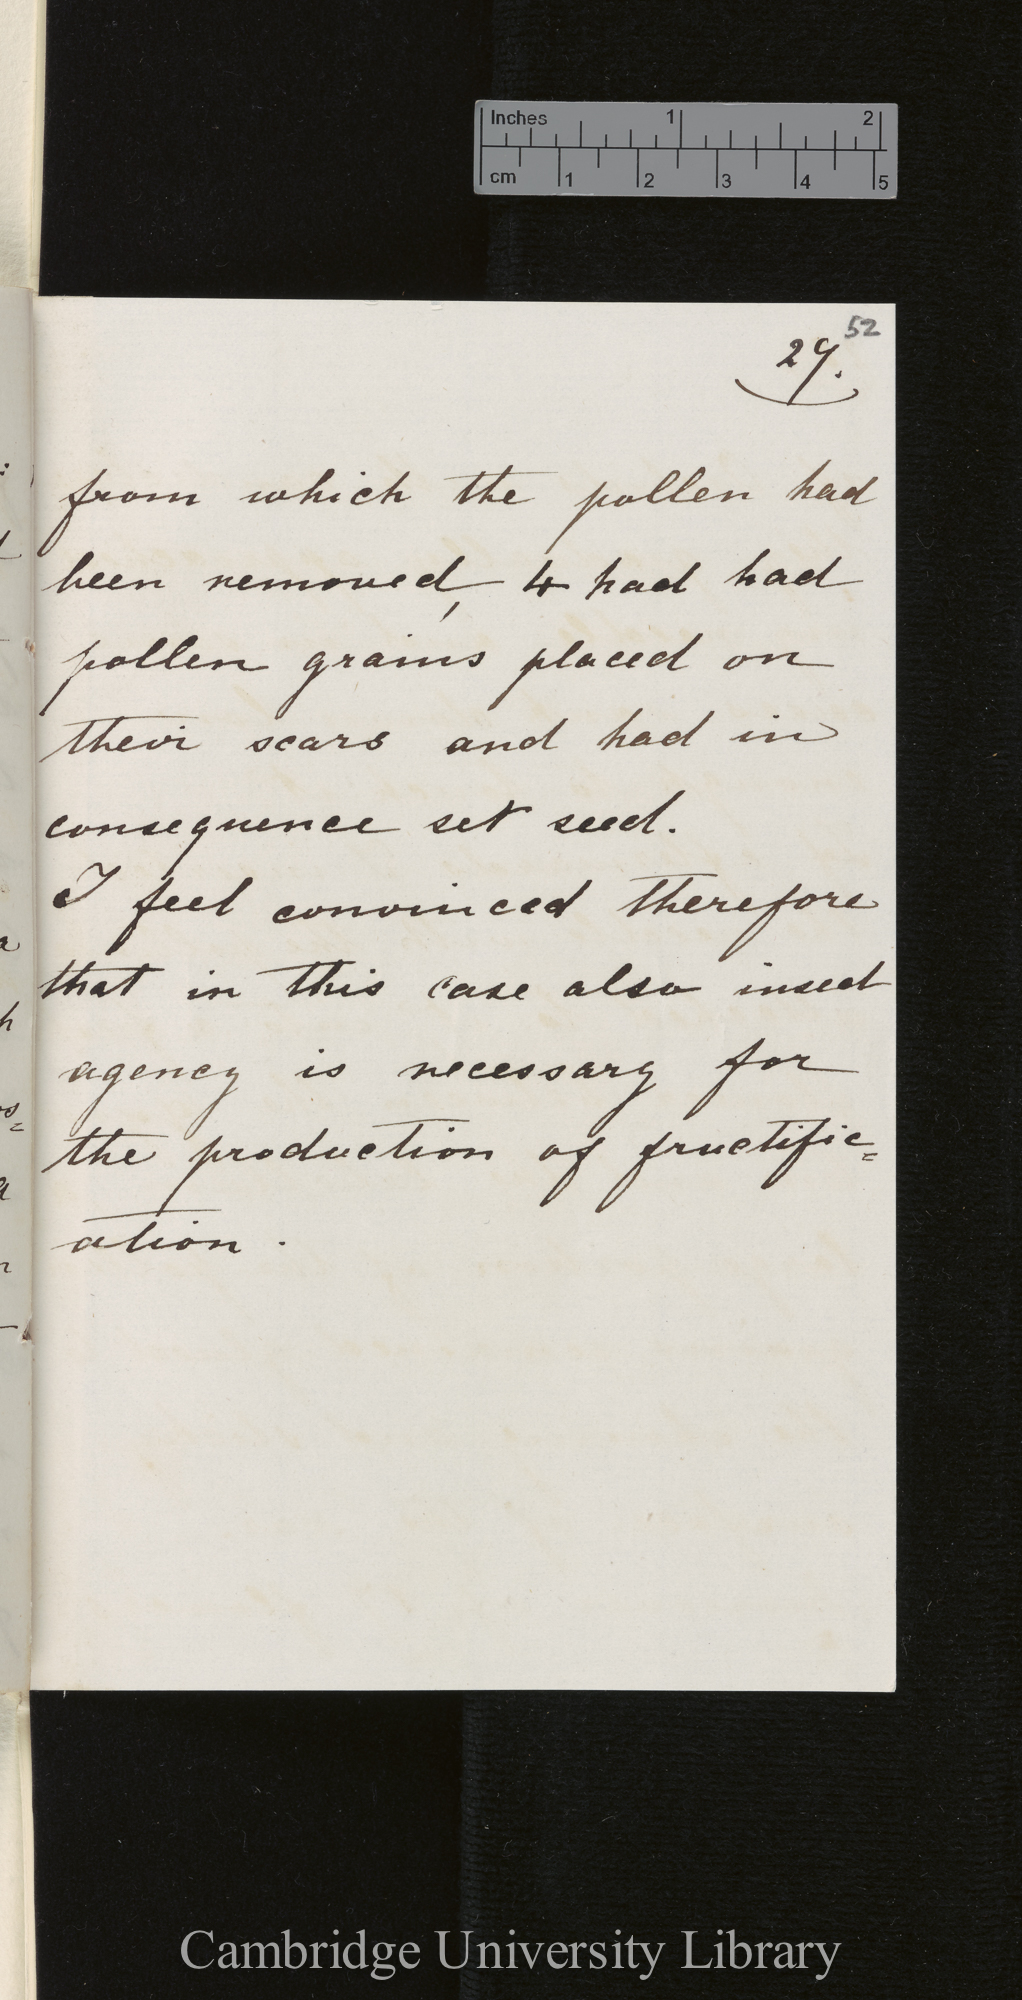 Inches 1 2
cm 1 2 3 4 5
52
29.
from which the pollen had
been removed, 4 had had
pollen grains placed on
their scars and had in
consequence set seed.
I feel convinced therefore
that in this case also insect
agency is necessary for
the production of fructific=
ation.
Cambridge University Library